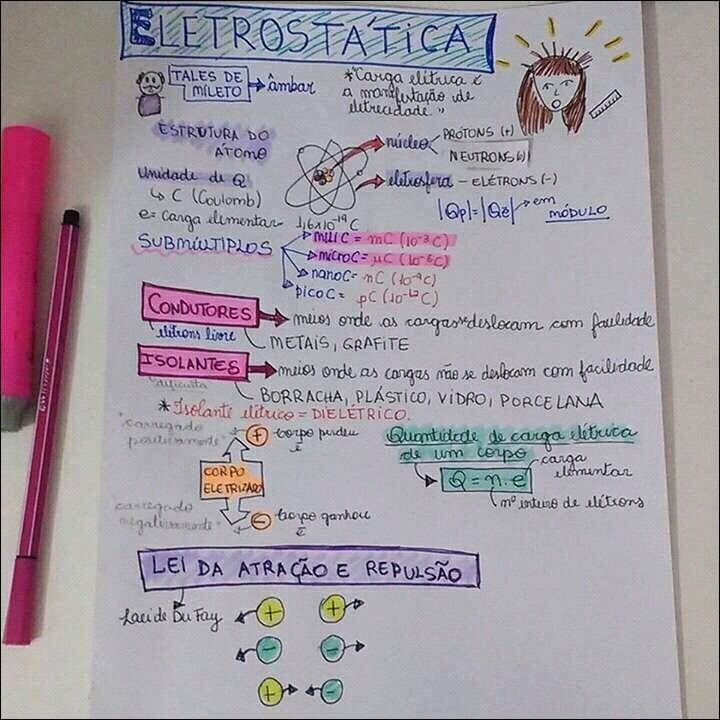 ELETROSTÁTICA
TALES DE
MILETO → âmbar
*"Carga elétrica é
a manifestação de
eletrecidade."
ESTRUTURA DO
ÁTOMO
núcleo
PRÓTONS (+)
NEUTRONS
eletrosfera - ELÉTRONS (-)
Unidade de Q
↳ C (Coulomb)
e = carga elementar - 1,6x10⁻¹⁹ C
|Qp|=|Qe| → em
MÓDULO
SUBMÚLTIPLOS
mili C = mC (10⁻³C)
micro C = μC (10⁻⁶C)
nano C = nC (10⁻⁹C)
pico C = pC (10⁻¹²C)
CONDUTORES → meios onde as cargas se deslocam com facilidade
elétrons livre
METAIS, GRAFITE
ISOLANTES → meios onde as cargas não se deslocam com facilidade
dificulta
BORRACHA, PLÁSTICO, VIDRO, PORCELANA
* Isolante elétrico = DIELÉTRICO.
"carregado
positivamente"
+ corpo perdeu
e
CORPO
ELETRIZADO
"carregado
negativamente"
- corpo ganhou
e
Quantidade de carga elétrica
de um corpo
Q = n.e
carga
elementar
nº inteiro de elétrons
LEI DA ATRAÇÃO E REPULSÃO
Lei de Du Fay
+ +
- -
+ -